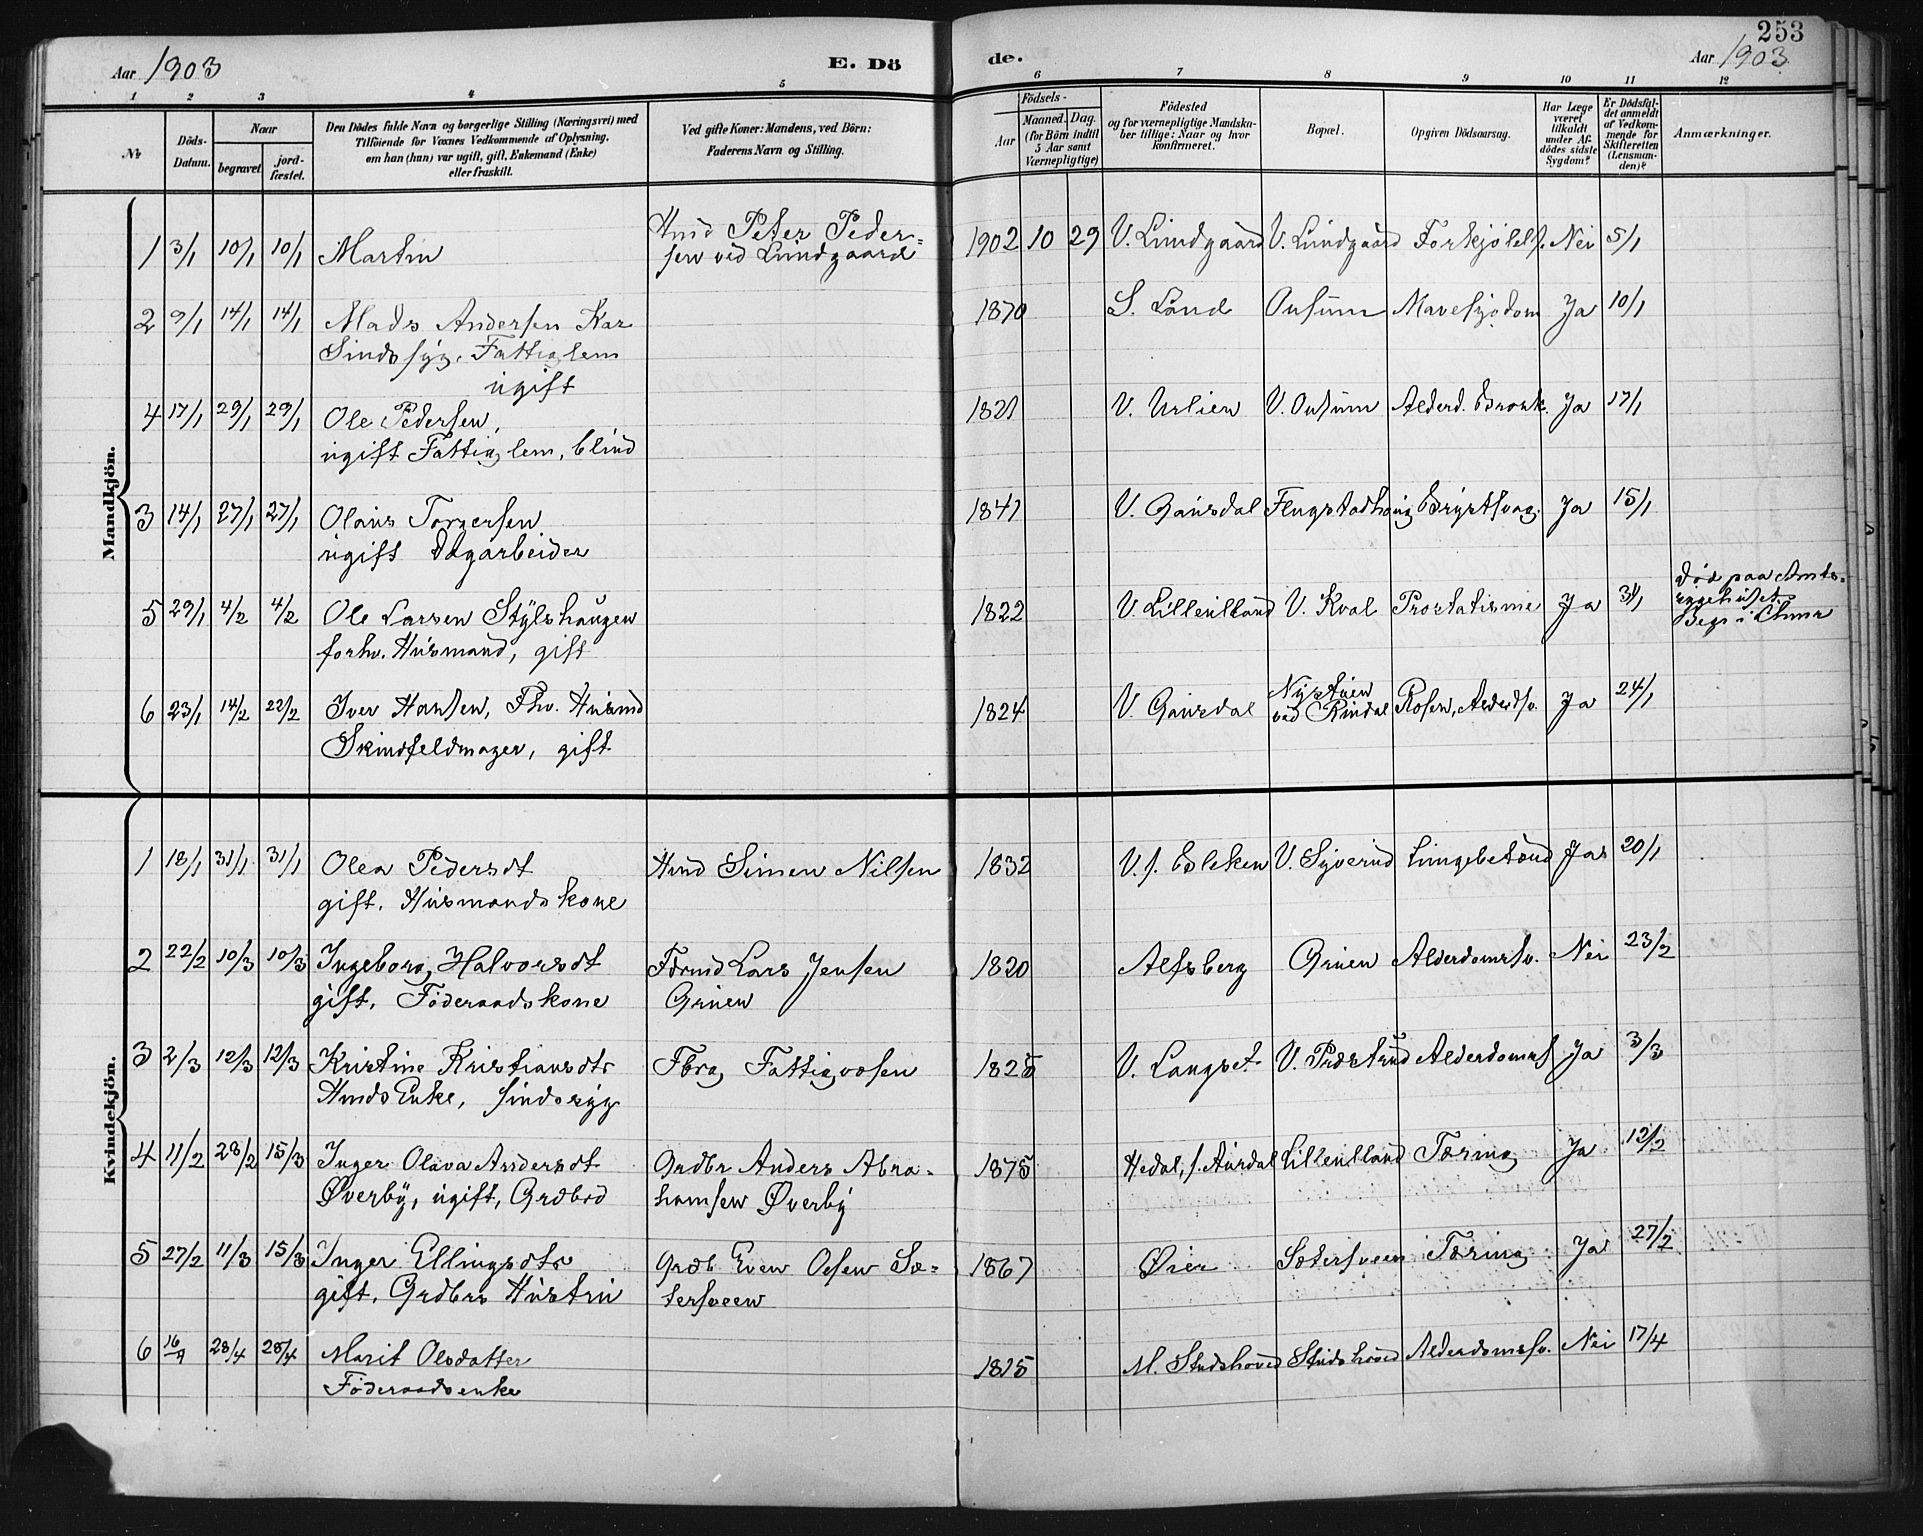 253
Aar 1903 E. Dö de. Aar 1903
1 2 3 4 5 6 7 8 9 10 11 12
No
Döds-Datum.
Naar begravet jordfæstet.
Den Dödes fulde Navn og borgerlige Stilling (Næringsvei) med
Tilföiende for Voxnes Vedkommende af Oplysning,
om han (hun) var ugift, gift, Enkemand (Enke)
eller fraskilt.
Ved gifte Koner: Mandens, ved Börn:
Faderens Navn og Stilling.
Födsels-
Aar Maaned. Dag.
(for Börn indtil
5 Aar samt
Værnepligtige)
Födested
og for værnepligtige Mandska-
ber tillige: Naar og hvor
konfirmeret.
Bopæl.
Opgiven Dödsaarsag.
Har Læge
været
tilkaldt
under Af-
dödes sidste
Sygdom?
Er Dödsfal-
det anmeldt
af Vedkom-
mende for
Skifteretten
(Lensman-
den)?
Anmærkninger.
Mandkjön.
1 3/1 10/1 10/1 Martin Hmd Peter Peder=
sen ved Lundgaard 1902 10 29 V. Lundgaard V. Lundgaard Forkjølels. Nei 5/1
2 9/1 14/1 14/1 Mads Andersen Kar 1870 S. Land Onsum Mavesygdom Ja 10/1
Sindssyg, Fattiglem
ugift
4 17/1 29/1 29/1 Ole Pedersen, 1821 V. Urlien V. Onsum Alderd. Bronk. Ja 17/1
ugift Fattiglem, blind
3 14/1 27/1 27/1 Olaus Torgersen 1841 V. Gausdal Flugstadhaug Brystsvag. Ja 15/1
ugift Dagarbeider
5 29/1 4/2 4/2 Ole Larsen Stylshaugen 1822 V. Lilleulland V. Kval Prostatisme Ja 31/1 Død paa Amts-
sygehuset
Begr i Lhmr
forhv. Husmand, gift
6 23/1 14/2 22/2 Iver Hansen, Fhv. Husmd 1824 V. Gausdal Nystuen
ved Rindal Rosen, Alderdsv. Ja 24/1
Skindfeldmager, gift
Kvindekjön.
1 18/1 31/1 31/1 Olea Pedersdt Hmd Simen Nilsen 1832 V. s. Esleken V. Syverud Lungebetænd Ja 20/1
gift, Husmandskone
2 22/2 10/3 10/3 Ingeborg Halvorsdt Fdrmd Lars Jensen 1820 Alfsberg Gruen Alderdomssv. Nei 23/2
gift, Föderaadskone Gruen
3 2/3 12/3 12/3 Kristine Kristiansdtr Fbrg Fattigvæsen 1825 V. Langset V. Præstrud Alderdomss Ja 3/3
Hmds Enke, sindssyg
4 11/2 28/2 15/3 Inger Olava Andersdt Grdbr Anders Abra- 1875 Hedal, s. Aurdal Lilleulland Tæring Ja 12/2
Øverby, ugift, Grdbrd hamsen Øverby
5 27/2 11/3 15/3 Inger Ellingsdtr Grdb Even Olsen Sæ= 1867 Øier Sætersveen Tæring Ja 27/2
gift, Grdbrs Hustru tersveen
6 16/4 28/4 28/4 Marit Olsdatter 1815 M. Studshoved Studshoved Alderdomssv. Nei 17/4
Föderaadsenke